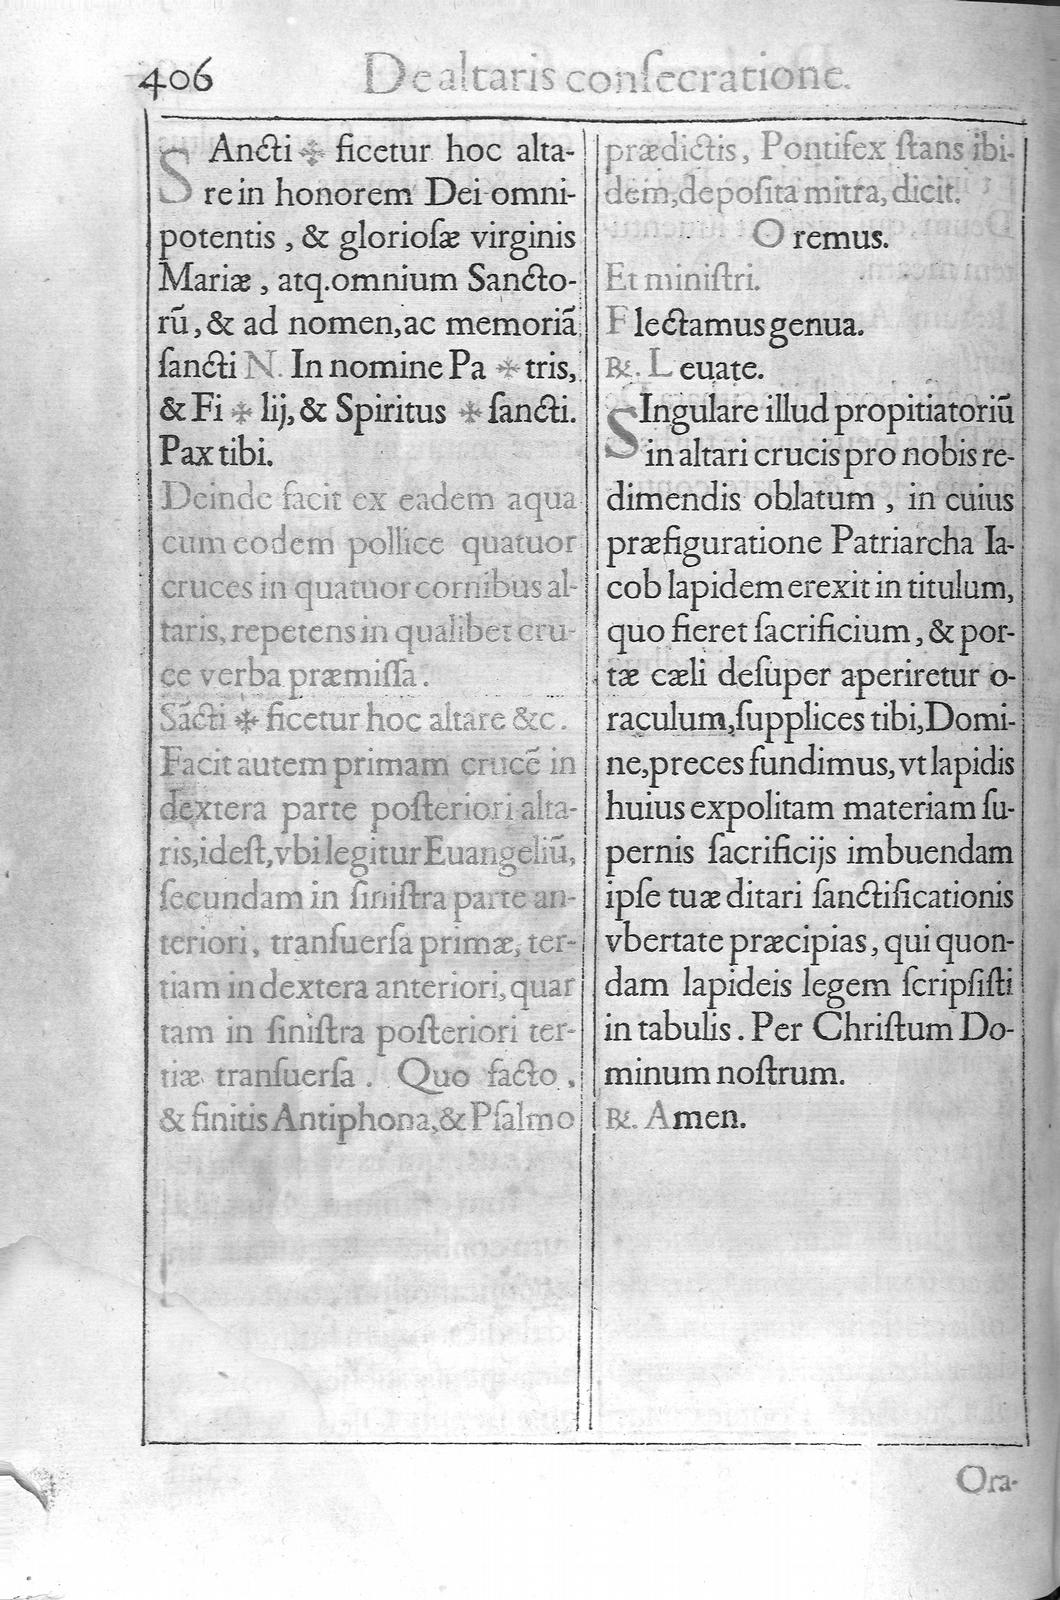 406 De altaris conſecratione.
SAncti ✠ ficetur hoc alta-
re in honorem Dei omni-
potentis, & glorioſæ virginis
Mariæ, atq. omnium Sancto-
rū, & ad nomen, ac memoriā
ſancti N. In nomine Pa ✠ tris,
& Fi ✠ lij, & Spiritus ✠ ſancti.
Pax tibi.
Deinde facit ex eadem aqua
cum eodem pollice quatuor
cruces in quatuor cornibus al-
taris, repetens in qualibet cru-
ce verba præmiſſa.
Sācti ✠ ficetur hoc altare &c.
Facit autem primam crucē in
dextera parte poſteriori alta-
ris, ideſt, vbi legitur Euangeliū,
ſecundam in ſiniſtra parte an-
teriori, tranſuerſa primæ, ter-
tiam in dextera anteriori, quar
tam in ſiniſtra poſteriori ter-
tiæ tranſuerſa. Quo facto,
& finitis Antiphona, & Pſalmo
prædictis, Pontifex ſtans ibi-
dem, depoſita mitra, dicit.
Oremus.
Et miniſtri.
Flectamus genua.
℟. Leuate.
SIngulare illud propitiatoriū
in altari crucis pro nobis re-
dimendis oblatum, in cuius
præfiguratione Patriarcha Ia-
cob lapidem erexit in titulum,
quo fieret ſacrificium, & por-
tæ cæli deſuper aperiretur o-
raculum, ſupplices tibi, Domi-
ne, preces fundimus, vt lapidis
huius expolitam materiam ſu-
pernis ſacrificijs imbuendam
ipſe tuæ ditari ſanctificationis
vbertate præcipias, qui quon-
dam lapideis legem ſcripſiſti
in tabulis. Per Chriſtum Do-
minum noſtrum.
℟. Amen.
Ora-